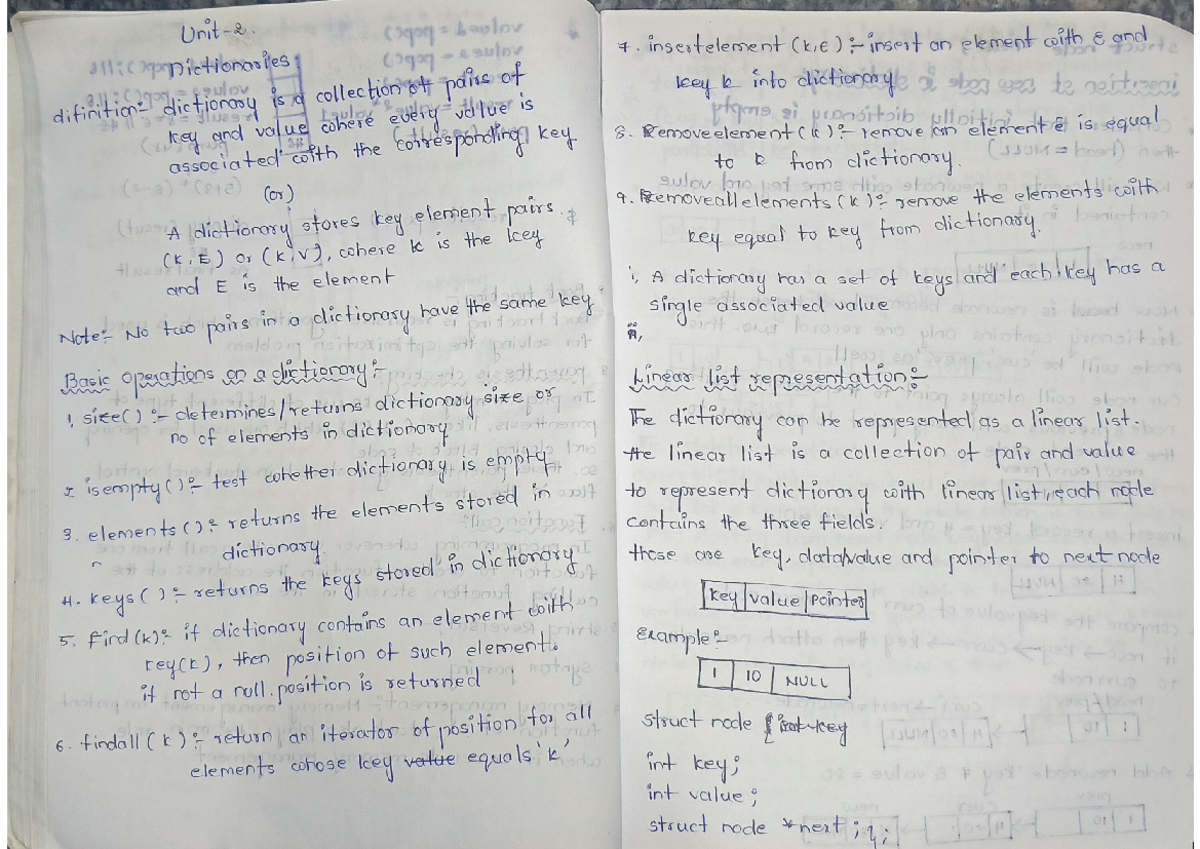 Unit-2.
Dictionaries
difinition:- dictionary is a collection of pairs of
key and value where every value is
associated with the corresponding key
(or)
A dictionary stores key element pairs
(K,E) or (K,V), where K is the key
and E is the element
Note:- No two pairs in a dictionary have the same key
Basic Operations on a dictionary:-
1. size() :- determines/returns dictionary size or
no of elements in dictionary
2. isempty():- test whether dictionary is empty
3. elements():- returns the elements stored in
dictionary.
4. keys() :- returns the keys stored in dictionary
5. find(k):- if dictionary contains an element with
key(k), then position of such element.
if not a null.position is returned
6. findall(k) :- return an iterator of position for all
elements whose key value equals 'k'
7. insertelement (k,e) :- insert an element with e and
key k into dictionary
8. Removeelement(k):- remove an element e is equal
to k from dictionary.
9. Removeallelements(k):- remove the elements with
key equal to key from dictionary.
i, A dictionary has a set of keys and each key has a
single associated value
ii,
Linear list representation:-
The dictionary can be represented as a linear list.
the linear list is a collection of pair and value
to represent dictionary with linear list, each node
contains the three fields.
those are key, data/value and pointer to next node
key value pointer
Example:-
1 10 NULL
struct node { int key
int key;
int value;
struct node *next; };